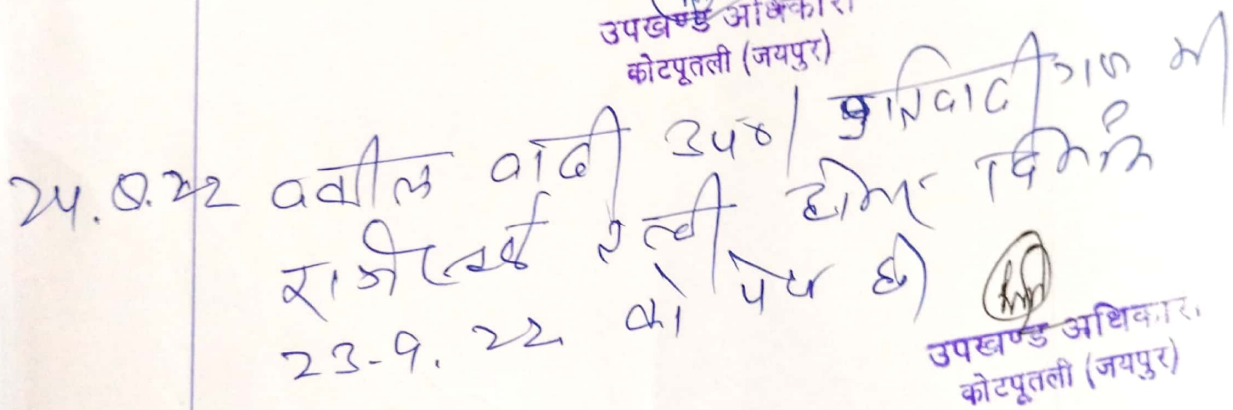 उपखण्ड अधिकारी
कोटपूतली (जयपुर)
24.8.22 वकील वादी उप० प्रतिवादीगण की
तल्बी होकर दिनांक
23-9.22 को पेश हो।
उपखण्ड अधिकारी
कोटपूतली (जयपुर)